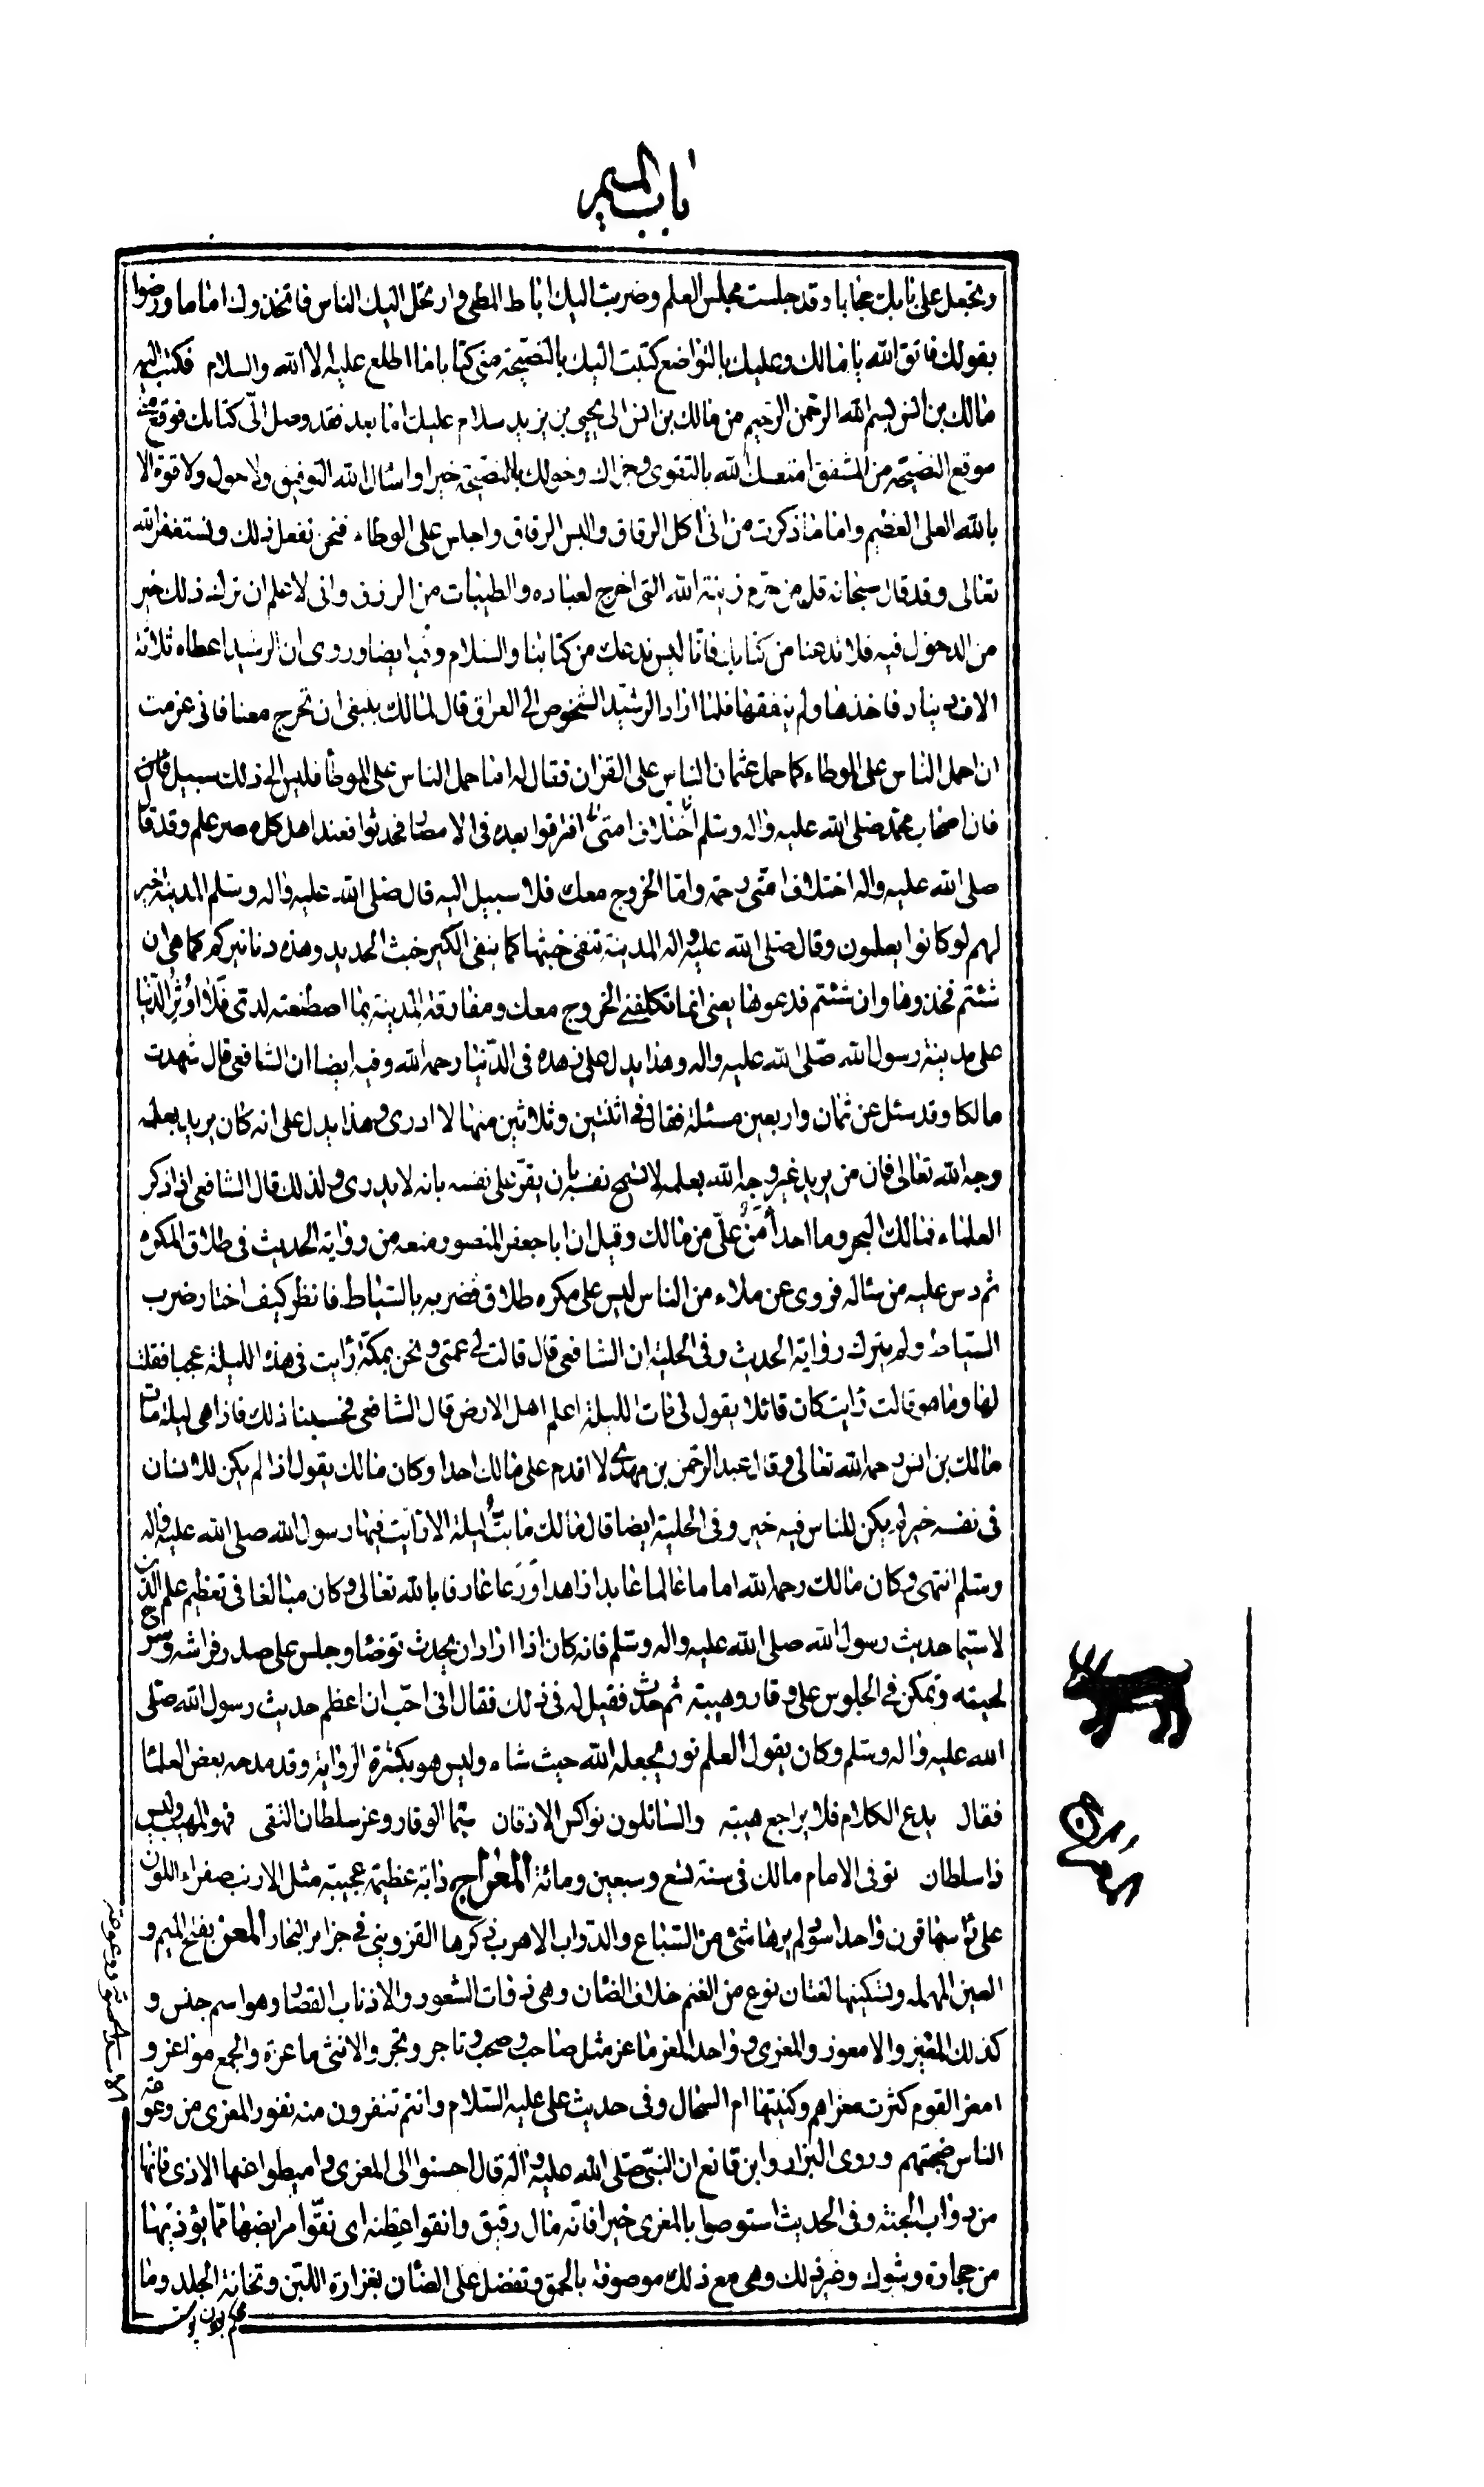 باب الميم
وتجعل على بابك حجابا وقد جلست مجلس العلم وضربت اليك اباط المطى وارتحل اليك الناس فاتخذوك اماما ورضوا
بقولك فاتق الله يا مالك وعليك بالتواضع كتبت اليك بالنصيحة منى كتابا ما اطلع عليه الا الله والسلام فكتب اليه
مالك بن انس بسم الله الرحمن الرحيم من مالك بن انس الى يحيى بن يزيد سلام عليك اما بعد فقد وصل الىّ كتابك فوقع منى
موقع النصيحة من المشفق امتعك الله بالتقوى وجزاك وخولك بالنصيحة خيرا واسال الله التوفيق ولا حول ولا قوة الا
بالله العلى العظيم واما ما ذكرت من انى اكل الرقاق والبس الرقاق واجلس على الوطاء فنحن نفعل ذلك ونستغفر الله
تعالى وقد قال سبحانه قل من حرّم زينة الله التى اخرج لعباده والطيبات من الرزق وانى لاعلم ان ترك ذلك خير
من الدخول فيه فلا تدعنا من كتابك فانا ليس ندعك من كتابنا والسلام وفيه ايضا وروى ان الرشيد اعطاه ثلاثة
الاف دينار فاخذها ولم ينفقها فلما اراد الرشيد الشخوص الى العراق قال لمالك ينبغى ان تخرج معنا فانى عزمت
ان احمل الناس على الموطاء كما حمل عثمان الناس على القران فقال له اما حمل الناس على الموطأ فليس الى ذلك سبيل
فان اصحاب محمد صلى الله عليه واله وسلم افترقوا بعده فى الامصار فحدثوا فعند اهل كل مصر علم وقد قال
صلى الله عليه واله اختلاف امّتى رحمة وامّا الخروج معك فلا سبيل اليه قال صلى الله عليه واله وسلم المدينة خير
لهم لو كانوا يعلمون وقال صلى الله عليه واله المدينة تنفى خبثها كما ينفى الكير خبث الحديد وهذه دنانيركم كما هى ان
شئتم فخذوها وان شئتم فدعوها يعنى انما تكلفنى الخروج معك ومفارقة المدينة بما اصطنعته لدىّ فلا اوثر الدّنيا
على مدينة رسول الله صلّى الله عليه واله وهذا يدل على زهده فى الدّنيا رحمه الله وفيه ايضا ان الشافعى قال شهدت
مالكا وقد سئل عن ثمان واربعين مسئلة فقال فى اثنتين وثلاثين منها لا ادرى وهذا يدل على انه كان يريد بعلمه
وجه الله تعالى فان من يريد غير وجه الله بعلمه لا تسمح نفسه بان يقرّ على نفسه بانه لا يدرى ولذلك قال الشافعى اذا ذكر
العلماء فمالك النجم وما احد أمنّ علىّ من مالك وقيل ان ابا جعفر المنصور منعه من رواية الحديث فى طلاق المكره
ثم دس عليه من سئاله فروى عن ملاء من الناس ليس على مكره طلاق فضربه بالسّياط فانظر كيف اختار ضرب
السياط ولم يترك رواية الحديث وفى الحلية ان الشافعى قال قالت لى عمتى ونحن بمكّة رايت فى هذه الليلة عجبا فقلت
لها وما هو قالت رايت كان قائلا يقول لى مات الليلة اعلم اهل الارض قال الشافعى فحسبنا ذلك فاذا هى ليلة مات
مالك بن انس رحمه الله تعالى وقال عبد الرحمن بن مهدى لا اقدم على مالك احدا وكان مالك يقول اذا لم يكن للانسان
فى نفسه خير لم يكن للناس فيه خير وفى الحلية ايضا قال مالك ما بتّ ليلة الا رايت فيها رسول الله صلى الله عليه واله
وسلم انتهى وكان مالك رحمه الله اماما عالما عابدا زاهدا وَرَعا عارفا بالله تعالى وكان مبالغا فى تعظيم علم الدّين
لا سيّما حديث رسول الله صلى الله عليه واله وسلم فانه كان اذا اراد ان يحدث توضا وجلس على صدر فراشه وسرّح
لحيته وتمكن فى الجلوس على وقار وهيبة ثم حدّث فقيل له فى ذلك فقال انى احبّ ان اعظم حديث رسول الله صلّى
الله عليه واله وسلم وكان يقول العلم نور يجعله الله حيث شاء وليس هو بكثرة الرواية وقد مدحه بعض العلماء
فقال يدع الكلام فلا يراجع هيبة والسائلون نواكس الاذقان سيما الوقار وعز سلطان التقى فهو المهيب وليس
ذا سلطان توفى الامام مالك فى سنة تسع وسبعين ومائة المعراج دابّة عظيمة عجيبة مثل الارنب صفراء اللون
على راسها قرن واحد اسود لم يرها شئ من السّباع والدّواب الا هرب ذكرها القزوينى فى جزاير البحار المعز بفتح الميم و
العين المهملة وتسكينها لغتان نوع من الغنم خلاف الضان وهى ذوات الشعور والاذناب القصار وهو اسم جنس و
كذلك المعيز والامعوز والمعزى وواحد المعز ماعز مثل صاحب وصحب وتاجر وتجر والانثى ماعزة والجمع مواعز و
امعز القوم كثرت معزاهم وكنيتها ام السخال وفى حديث على عليه السّلام وانتم تنفرون منه نفور المعزى من وعوعة
الناس ضجتهم وروى البزار وابن قانع ان النبىّ صلّى الله عليه واله قال احسنوا الى المعزى واميطوا عنها الاذى فانها
من دواب الجنّة وفى الحديث استوصوا بالمعزى خيرا فانّه مال رقيق وانقوا عطنه اى نقّوا مرابضها ممّا يؤذيها
من حجارة وشوك وغير ذلك وهى مع ذلك موصوفة بالحمق وتفضل على الضان بغزارة اللبن وثخانة الجلد وما